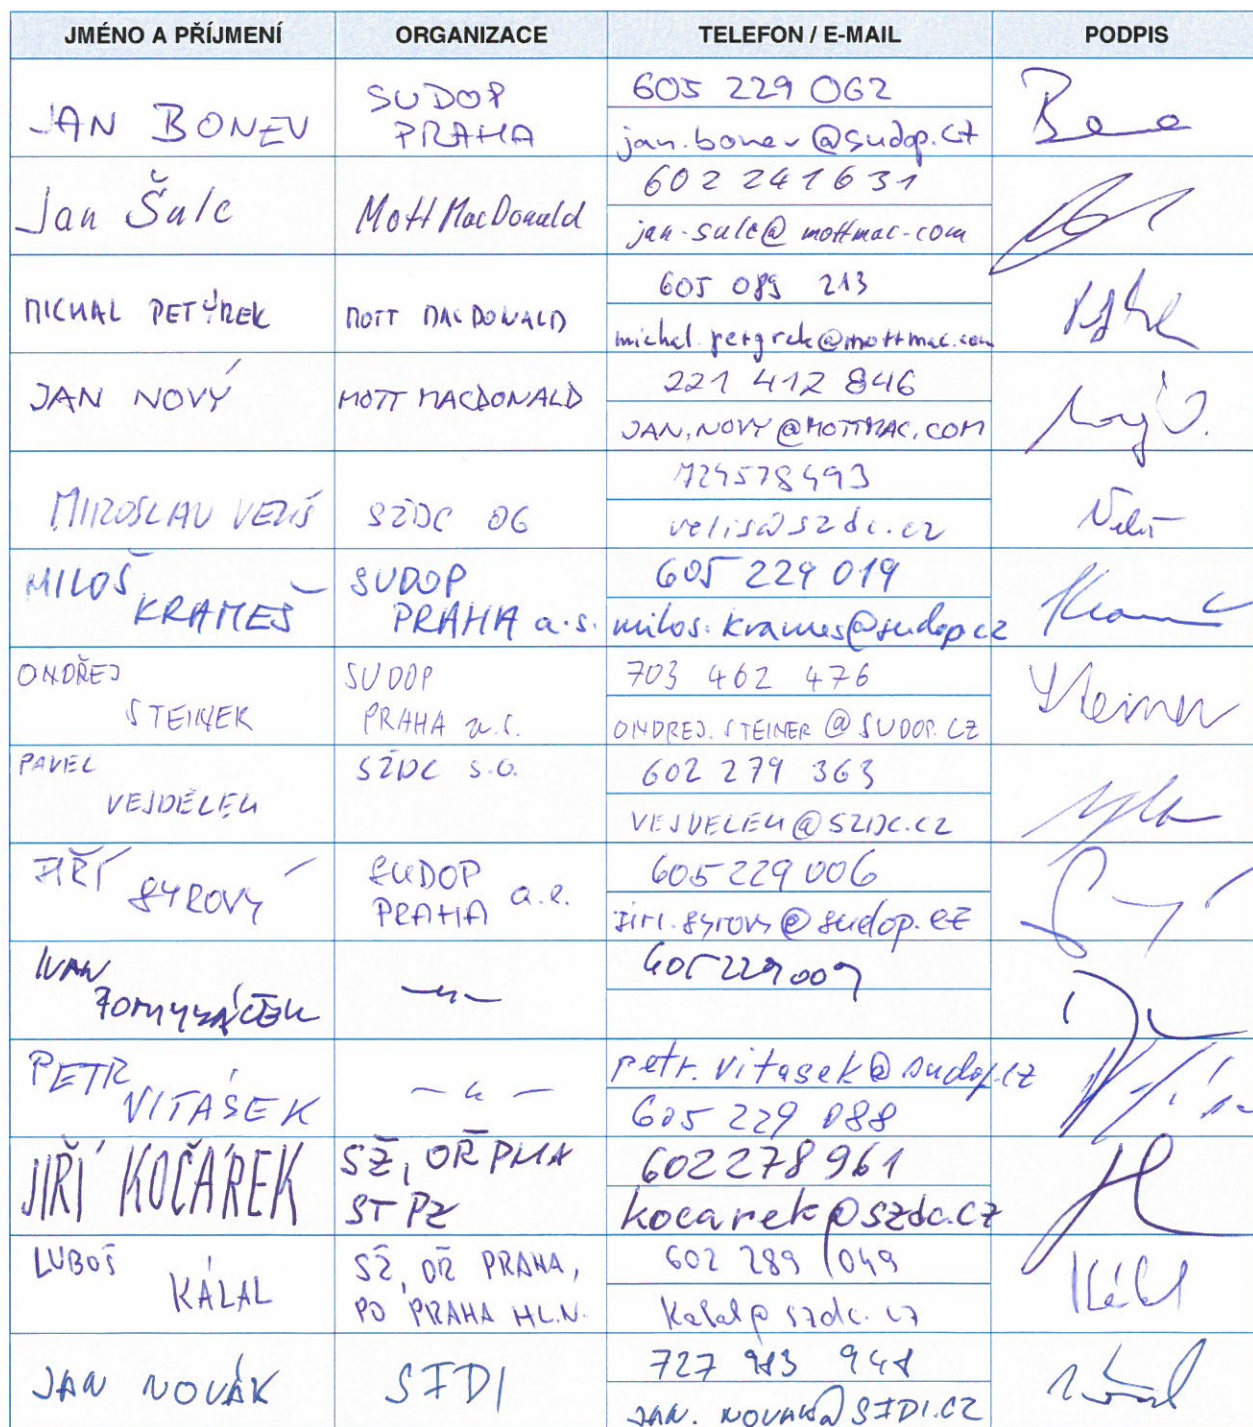 JMÉNO A PŘÍJMENÍ ORGANIZACE TELEFON / E-MAIL PODPIS
JAN BONEV SUDOP PRAHA 605 229 062
jan.bonev@sudop.cz
Jan Šulc Mott MacDonald 602 241 631
jan.sulc@mottmac.com
MICHAL PETÝREK MOTT MACDONALD 605 089 213
michal.petyrek@mottmac.com
JAN NOVÝ MOTT MACDONALD 221 412 846
JAN.NOVY@MOTTMAC.COM
MIROSLAV VELIŠ SŽDC O6 724578493
velis@szdc.cz
MILOŠ KRAMEŠ SUDOP PRAHA a.s. 605 229 019
milos.krames@sudop.cz
ONDŘEJ STEINER SUDOP PRAHA a.s. 703 462 476
ONDREJ.STEINER@SUDOP.CZ
PAVEL VEJDĚLEK SŽDC s.o. 602 279 363
VEJDELEK@SZDC.CZ
JIŘÍ SYROVÝ SUDOP PRAHA a.s. 605 229 006
jiri.syrovy@sudop.cz
IVAN —〃— 605 229 009
PETR VITÁSEK —〃— petr.vitasek@sudop.cz
605 229 088
JIŘÍ KOČÁREK SŽ, OŘ PHA 602278961
ST PZ kocarek@szdc.cz
LUBOŠ KÁLAL SŽ, OŘ PRAHA, 602 289 049
PO PRAHA HL.N. kalal@szdc.cz
JAN NOVÁK SFDI 727 983 948
JAN.NOVAK@SFDI.CZ